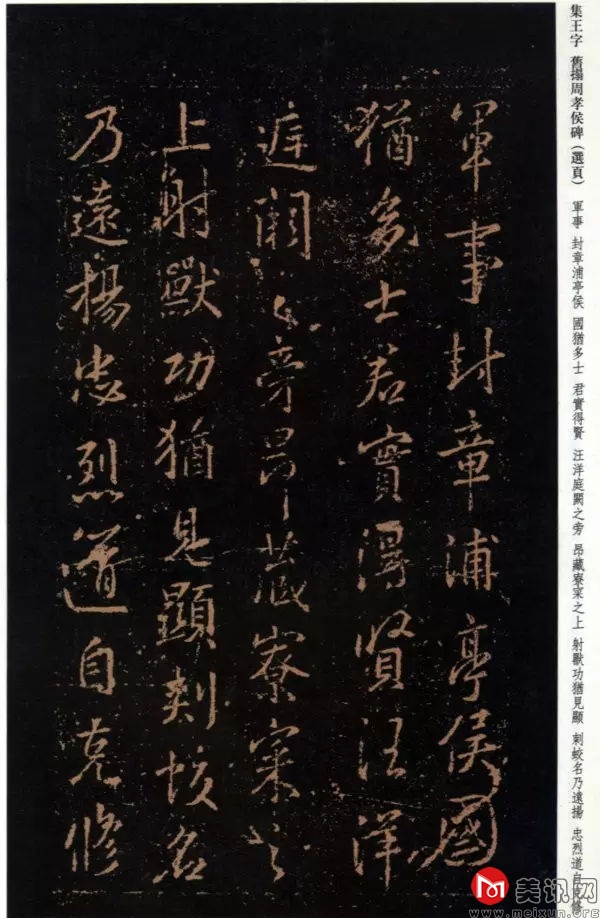 集王字 舊搨周孝侯碑（選頁） 軍事 封章浦亭侯 國猶多士 君實得賢 汪洋庭闕之旁 昂藏寮寀之上 射獸功猶見顯 刺蛟名乃遠揚 忠烈道自克修
軍事封章浦亭侯國
猶多士君實得賢汪洋
庭闕之旁昂藏寮寀之
上射獸功猶見顯刺蛟名
乃遠揚忠烈道自克修
美讯网
www.meixun.net